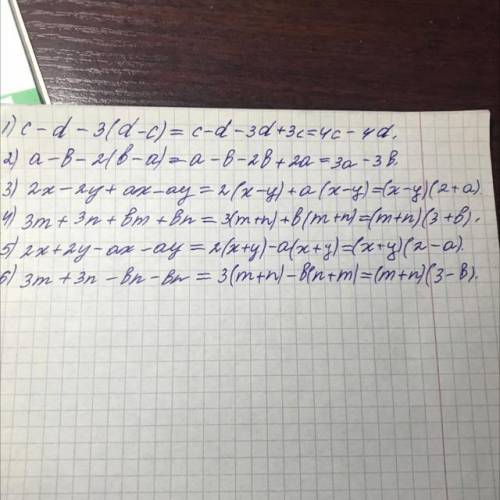 1) c-d-3(d-c)= c-d-3d+3c=4c-4d,
2) a-в-2(в-a)=a-в-2в+2a=3a-3в.
3) 2x-2y+ax-ay=2(x-y)+a(x-y)=(x-y)(2+a).
4) 3m+3n+вm+вn=3(m+n)+в(m+n)=(m+n)(3+в).
5) 2x+2y-ax-ay=2(x+y)-a(x+y)=(x+y)(2-a).
6) 3m+3n-вn-вm=3(m+n)-в(n+m)=(m+n)(3-в).